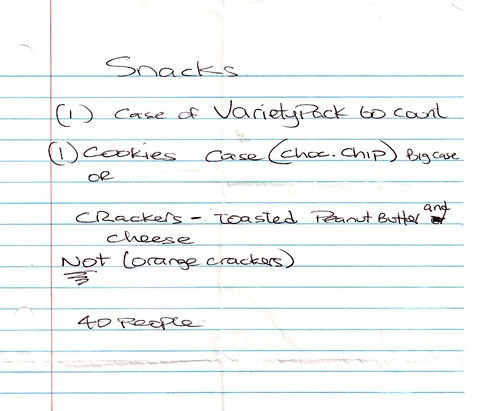 Snacks
(1) Case of Variety Pack 60 count
(1) Cookies Case (choc. chip) Big case
OR
Crackers - Toasted Peanut Butter and
cheese
NOT (orange crackers)
40 People